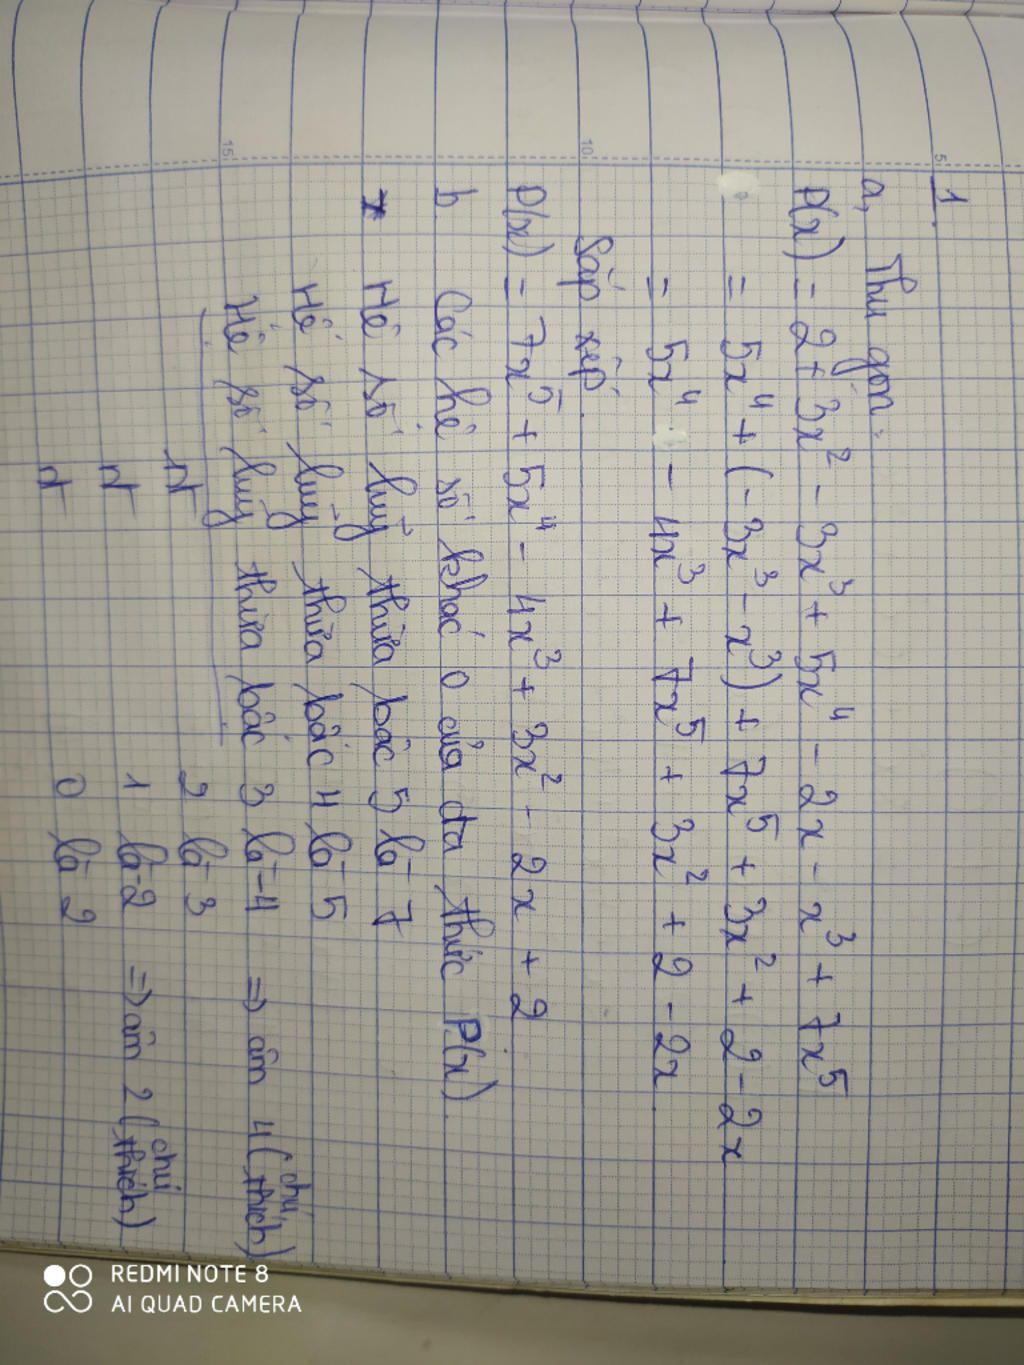 1.
a, Thu gọn:
P(x) = 2 + 3x² - 3x³ + 5x⁴ - 2x - x³ + 7x⁵
= 5x⁴ + (-3x³ - x³) + 7x⁵ + 3x² + 2 - 2x
= 5x⁴ - 4x³ + 7x⁵ + 3x² + 2 - 2x
Sắp xếp.
P(x) = 7x⁵ + 5x⁴ - 4x³ + 3x² - 2x + 2
b Các hệ số khác 0 của đa thức P(x).
Hệ số luỹ thừa bậc 5 là 7
Hệ số luỹ thừa bậc 4 là 5
Hệ số luỹ thừa bậc 3 là -4 => âm 4 (chú thích)
nt 2 là 3
nt 1 là -2 => âm 2 (chú thích)
nt 0 là 2
5
10
15
REDMI NOTE 8
AI QUAD CAMERA